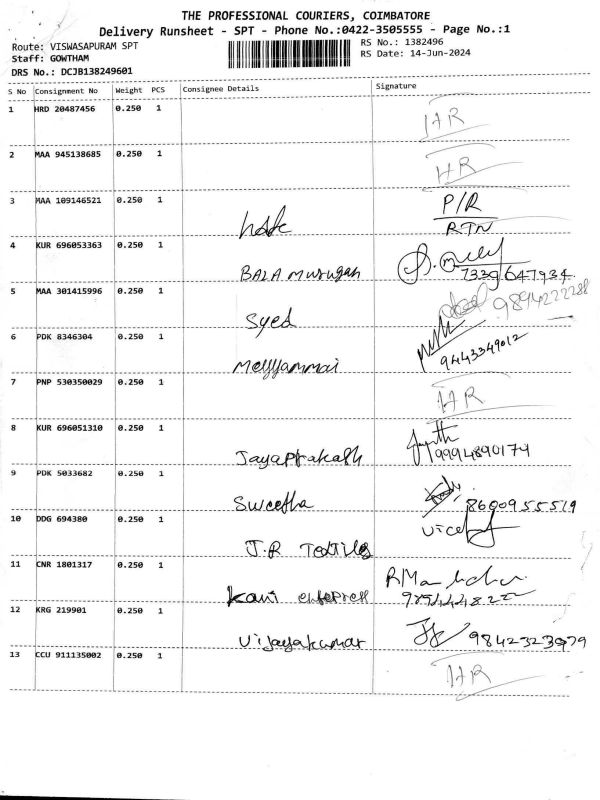 THE PROFESSIONAL COURIERS, COIMBATORE
Delivery Runsheet - SPT - Phone No.:0422-3505555 - Page No.:1
Route: VISWASAPURAM SPT
RS No.: 1382496
Staff: GOWTHAM
RS Date: 14-Jun-2024
DRS No.: DCJB138249601
S No Consignment No Weight PCS Consignee Details Signature
1 HRD 20487456 0.250 1
2 MAA 945138685 0.250 1
3 MAA 109146521 0.250 1 P/R
RTN
4 KUR 696053363 0.250 1
BALA Murugan 7339647934
5 MAA 301415996 0.250 1
Syed 9894222288
6 PDK 8346304 0.250 1
Meyyammai 9443349012
7 PNP 530350029 0.250 1
8 KUR 696051310 0.250 1
Jayaprakash 9994890174
9 PDK 5033682 0.250 1
Swetha 8600955519
10 DDG 694380 0.250 1
J.R Textiles
11 CNR 1801317 0.250 1
12 KRG 219901 0.250 1
Vijayakumar 9842323979
13 CCU 911135002 0.250 1